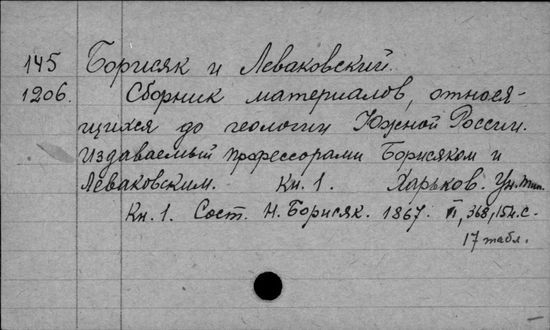 145 Борисяк и Леваковский.
1206. Сборник материалов, относя-
щихся до геологии Южной России.
Издаваемый профессорами Борисяком и
Леваковским. Кн. 1. Харьков. Ун. тип.
Кн. 1. Сост. Н. Борисяк. 1867. VI, 368, 154 с.
17 табл.